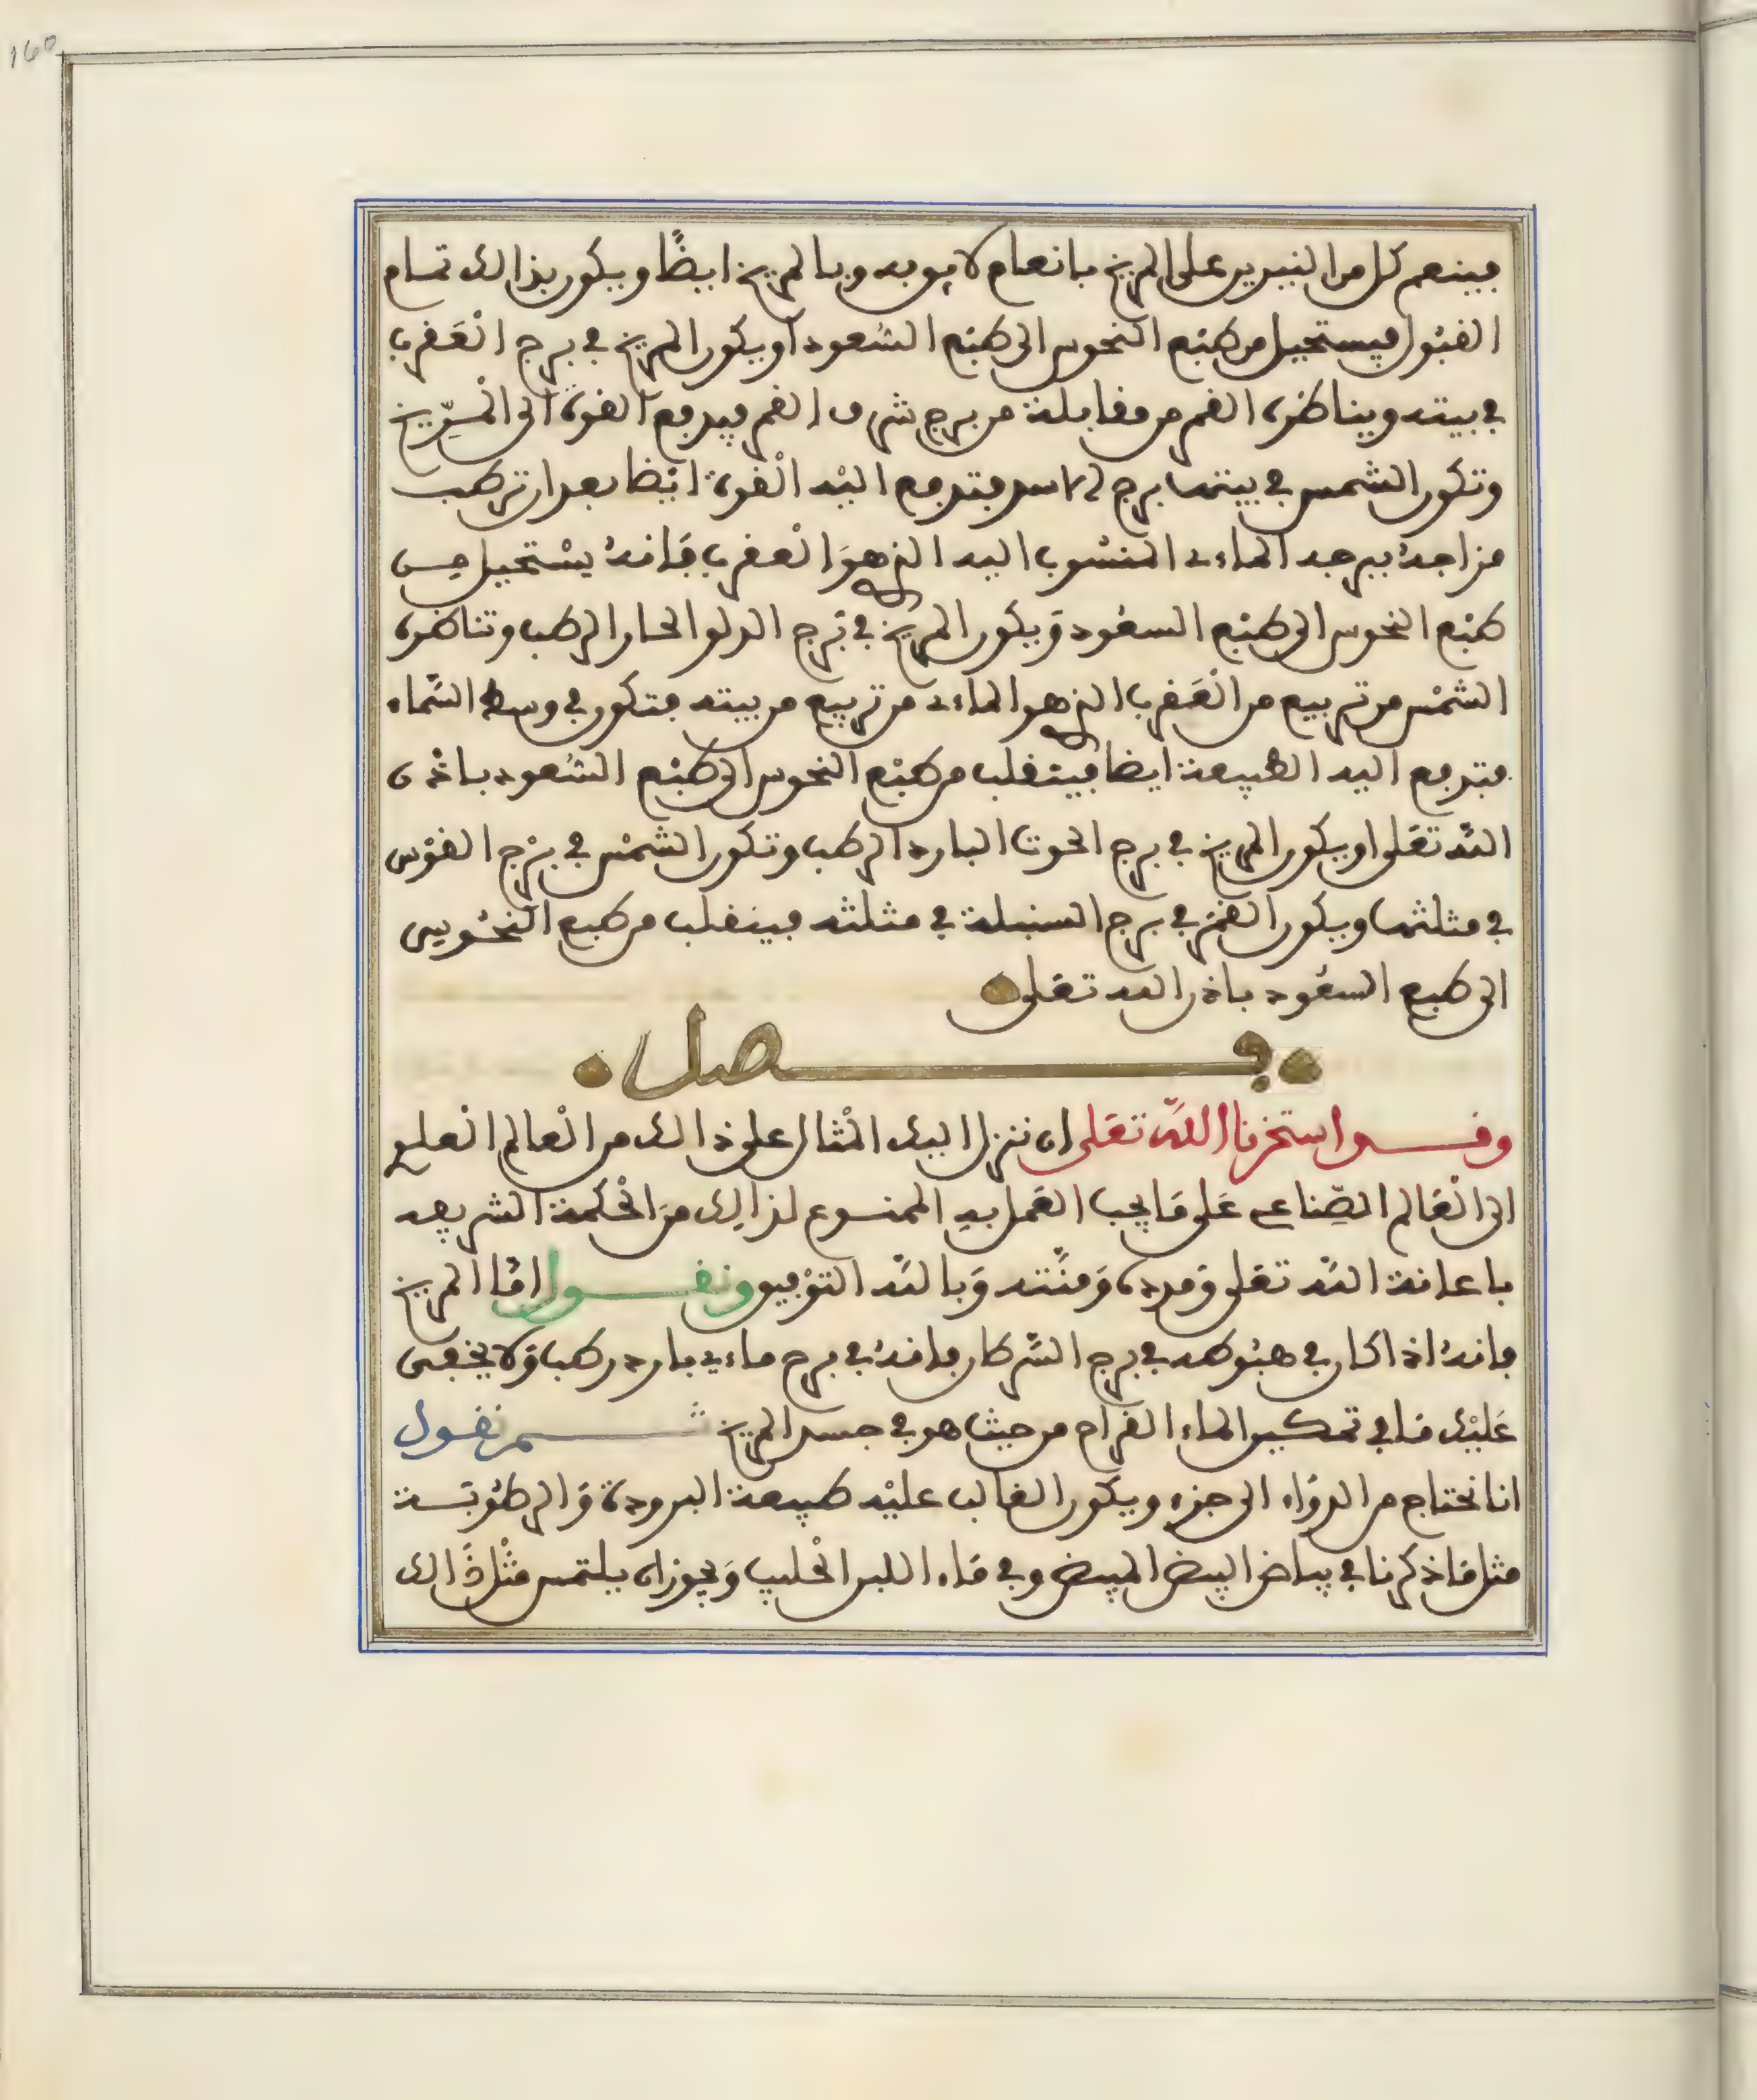 160
فينعم كل من النيرين على المريخ بانعام لايق به وبالمريخ ايضًا ويكون بذالك تمام
القبُول فيستحيل من طبْع النحوس الى طبْع السُعود او يكون المريخ في برج العَقرب
في بيته ويناظره القمر من مقابلة من برج شرف القمر فيدفع القوة الى المرّيخ
وتكون الشمس في بيتها برج الاسد فتدفع اليْه القوة ايْضا بعد ان تركب
مزاجهُ ببرجه الماءي المنسُوب اليه الذي هوَ العقرب فَانهُ يسْتحيل من
طبْع النحوس الى طبْع السعُود وَيكون المريخ في بُرج الدلو الحار الرطب وتناظره
الشمْس من تربيع من العَقرب الذي هو الماءي من تربيع من بيته فتكون في وسط السَّماء
فتدفع اليه الطبيعة ايضا فينقلب من طبْع النحوس الى طبْع السُعود باذن
اللَّه تعَلى او يكون المريخ في برج الحوت البارد الرطب وتكون الشمْس في برْج القوْس
في مثلثتها ويكون القمَر في برج السنبلة في مثلثته فينقلب من طبع النحُوس
الى طبع السعُود باذن الله تعَلى
فصل
وقد استخرنا اللَّه تعَلى ان ننزل اليك المْثال على ذالك من العْالم العلوي
الى العَالم الصّناعي عَلى مَا يجب العَمل بهِ الممنوع لذالِك منَ الحْكمة الشريفه
باعانة اللَّه تعَلى وَمدده وَمنَّته وَبالله التوْفيق ونقول امَّا المريخ
فانهُ اذا كان في هبُوطه في برج السَّرطان فانهُ في برج ماءي بارد رطب وَلا يخفى
عَليْك مَا في تمكين الماء القراح من حيث هو في جسد المريخ ثم نقول
انا نحتاج من الدوَاء الى جزء ويكون الغالب عليْه طبيعة البرودة وَالرطُوبَة
مثل مَا ذكرنا في بياض البيض المبيض وفي مَاء اللبن الحْليب وَيجوز ان يلتمس مثْل ذَالك